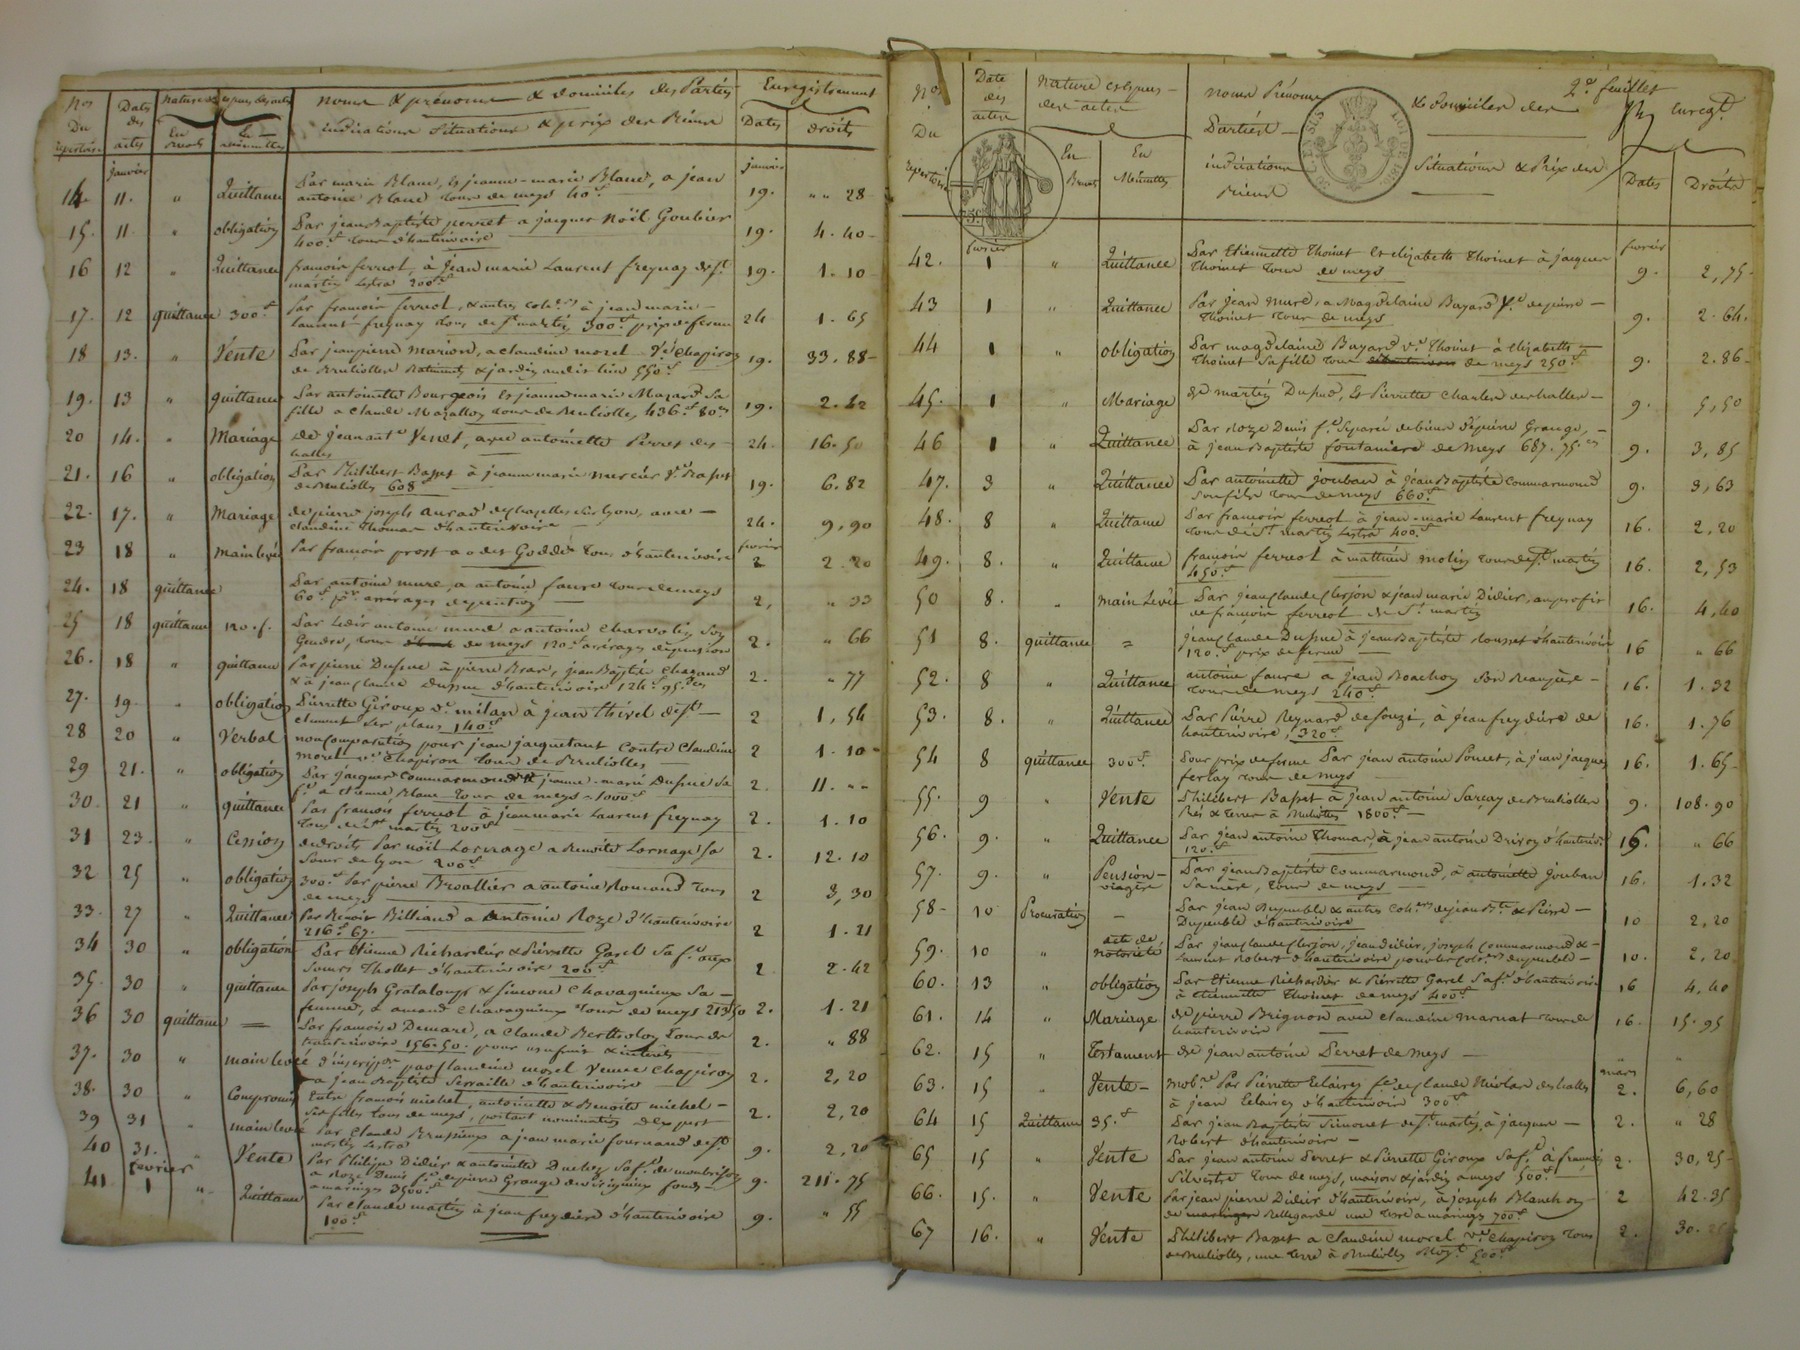 Nos Du répertoire
Dates des actes
Nature & espèces des actes
En brevets
En minuttes
noms & prénoms & domiciles des Parties
indications situations & prix des Biens
Enregistrement
Dates
droits
janvier
janvier
14. 11. " Quittance Par marie Blanc, & jeanne-marie Blanc, a jean 19. " " 28
antoine Blanc tous de meys 40.f
15. 11. " obligation Par jean Baptiste perret a jacques Noël Goubier 19. 4. 40
400.f tous d'hauterivoire
16 12 " Quittance françois ferreol, à jean marie Laurent freynay de st. 19. 1. 10
martin Lestra 200.f
17. 12 quittance 300.f Par françois ferreol, & autres cohers à jean marie 24 1. 65
Laurent freynay tous de st martin 300.f prix de ferme
18 13. " Vente Par jean pierre marion, a claudine morel Ve chapiron 19. 33. 88
de Brulliolles Batiments & jardin audit lieu 550.f
19. 13 " quittance Par antoinette Bourgeois & jeanne marie Mazard sa 19. 2. 42
fille a claude Mazallon tous de Brulliolles, 436.f 80.c
20 14. " Mariage de jean ante Venet, avec antoinette Perret des 24. 16. 50
halles
21. 16 " obligation Par Philibert Basset à jeanne marie mercier Ve Basset 19. 6. 82
de Brulliolles 608
22. 17. " Mariage de pierre joseph aurad de chazelles sur Lyon, avec 24. 9. 90
claudine Thomas d'hauterivoire
fevrier
23 18 " main levée Par françois prost a odet Goddé tous d'hauterivoire 2 2. 20
24. 18 quittance Par antoine mure a antoine faure tous de meys 2, " 33
60.f pr. arrérages de pention
25 18 quittance 120.f. Par Ledit antoine mure a antoine charvolin son 2. " 66
Gendre, tous de meys 120.f arrérages de pension
26. 18 " quittance Par pierre Dupuе à pierre Bras, jean Baptiste chazaud 2. " 77
& à jean claude Dupuе d'hauterivoire 124.f 95.c
27. 19 " obligation Pierrette Giroux ve milan à jean thivel de st 2 1, 54
clement Les places 140.f
28 20 " Verbal non comparution pour jean jacquetant contre claudine 2 1. 10
morel ve chapiron tous de Brulliolles
29 21. " obligation Par jacques commarmond & jeanne-marie Dupuе sa 2. 11. " "
fe a etienne Blanc tous de meys 1000.f
30. 21 " quittance Par françois ferreol à jean marie Laurent freynay 2. 1. 10
tous de st martin 200.f
31 23 " Cession de droits Par noël Lornage a Benoite Lornage sa 2. 12. 10
soeur de Lyon 200.f
32 25 " obligation 300.f Par pierre Broallier a antoine Romand tous 2 3, 30
de meys
33. 27 " Quittance Par Benoit Billiard a antoine Roze d'hauterivoire 2 1. 21
216.f 67.
34 30 " obligation Par etienne Richardier & Pierrette Garel sa fe. aux 2 2. 42
soeurs Thollet d'hauterivoire 200.f
35. 30 " quittance Par joseph Grataloup & simone chavagnieux sa 2. 1. 21
femme, a amand chavagnieux tous de meys 213.f 50
36 30 quittance Par françoise Demare, a claude Bertholon tous de 2. " 88
hauterivoire 156.50. pour usufruit & interets
37. 30 " main levée d'inscripon par claudine morel veuve chapiron 2. 2, 20
a jean Baptiste serraille d'hauterivoire
38. 30 " Compromis Entre françois michel, antoinette & Benoite michel 2. 2, 20
ses filles tous de meys, portant nomination d'expert
39 31 " main levée Par claude Brussieux a jean marie fournand de st. 9. 2, 20
martin Lestra
40 31. " Vente Par Philippe Didier & antoinette Duchez sa fe. de montbrison 9. 211. 75
a roze Denis fe. de pierre Grange de virigneux fonds
a maringes 3500.f
fevrier
41 1 " Quittance Par claude martin à jean freydiere d'hauterivoire 9. " 55
100.f
2e. feuillet
No. Du répertoire
Date des actes
nature espèces des actes
En Brevets
En Minuttes
noms Prénoms & domiciles des
Parties
indications Situations & Prix des
Biens
enregt.
Dates
Droits
fevrier
fevrier
42. 1 " Quittance Par Etiennette Thoinet et elizabeth Thoinet à jacques 9. 2, 75
Thoinet tous de meys
43 1 " Quittance Par jean mure, a Magdelaine Bayard Ve de pierre 9. 2. 64.
Thoinet tous de meys
44 1 " obligation Par magdelaine Bayard ve Thoinet à elizabeth 9. 2. 86
Thoinet sa fille tous de meys 250.f
45. 1 " Mariage de martin Dupuе, & Pierrette charles des halles 9. 5, 50
46 1 " Quittance Par Roze Denis fe. separée de biens de pierre Grange, 9. 3, 85
à jean Baptiste fontaniere de Meys 687. 75.c
47. 3 " Quittance Par antoinette jouban à jean Baptiste commarmond 9. 3, 63
son fils tous de meys 660.f
48. 8 " Quittance Par françois ferreol à jean-marie Laurent freynay 16. 2, 20
tous de st. martin Lestra 400.f
49. 8. " Quittance françois ferreol à mathieu molin tous de st martin 16. 2, 53
450.f
50 8. " main Levée Par jean claude clerjon & jean marie Didier, au profit 16. 4, 40
de françois ferreol de st. martin
51 8. quittance = jean claude Dupuе à jean Baptiste rousset d'hauterivoire 16 " 66
120.f prix de ferme
52. 8 " Quittance antoine faure a jean Boachon son Beaupère 16. 1. 32
tous de meys 240.f
53. 8. " Quittance Par Pierre Reynard de souzi, à jean freydiere de 16. 1. 76
hauterivoire, 320.f
54 8 quittance 300.f. Pour prix de ferme Par jean antoine Poncet, à jean jacques 16. 1. 65
ferlay tous de meys
55. 9 " Vente Philibert Basset à jean antoine sarcay de Brulliolles 9. 108. 90
Prés & terres à Brulliolles 1800.f
56. 9. " Quittance Par jean antoine Thomas, à jean antoine Drivon d'hauteriv. 16. " 66
120.f
57. 9. " Pension viagère Par jean Baptiste commarmond, à antoinette jouban 16. 1. 32
sa mère, tous de meys
58 10 Procuration — Par jean Dupeuble & autres cohers de jean Bte & Pierre 10 2, 20
Dupeuble d'hauterivoire
59. 10 " acte de notoriété Par jean claude clerjon, jean Didier, joseph commarmond & 10. 2, 20
Laurent Robert d'hauterivoire pour les cohers dupeuble
60. 13 " obligation Par Etienne Richardier & Pierrette Garel sa fe. d'hauterivoire 16 4, 40
à Etiennette Thoinet de meys 400.f
61. 14 " Mariage de pierre Brignon avec claudine marnat tous de 16. 15. 95
hauterivoire
62. 15 " Testament de jean antoine Perret de meys " "
mars
63. 15 " Vente mobre Par Pierrette Eclairey fe. de claude Nicolas des halles 2. 6, 60
à jean Eclairey d'hauterivoire 300.f
64 15 Quittance 35.f Par jean Baptiste simonet de st. martin, à jacques 2. " 28
Robert d'hauterivoire
65 15 " Vente Par jean antoine Perret & Pierrette Giroux sa fe. à françois 2. 30, 25
silvestre tous de meys, maison & jardin a meys 500.f
66. 15. " Vente Par jean pierre Didier d'hauterivoire, à joseph Blanchon 2 42. 35
de Bellegarde une terre a maringes 700.f
67 16. " Vente Philibert Basset a claudine morel ve chapiron tous 2. 30. 25
de Brulliolles, une terre à Brulliolles moyt 500.f